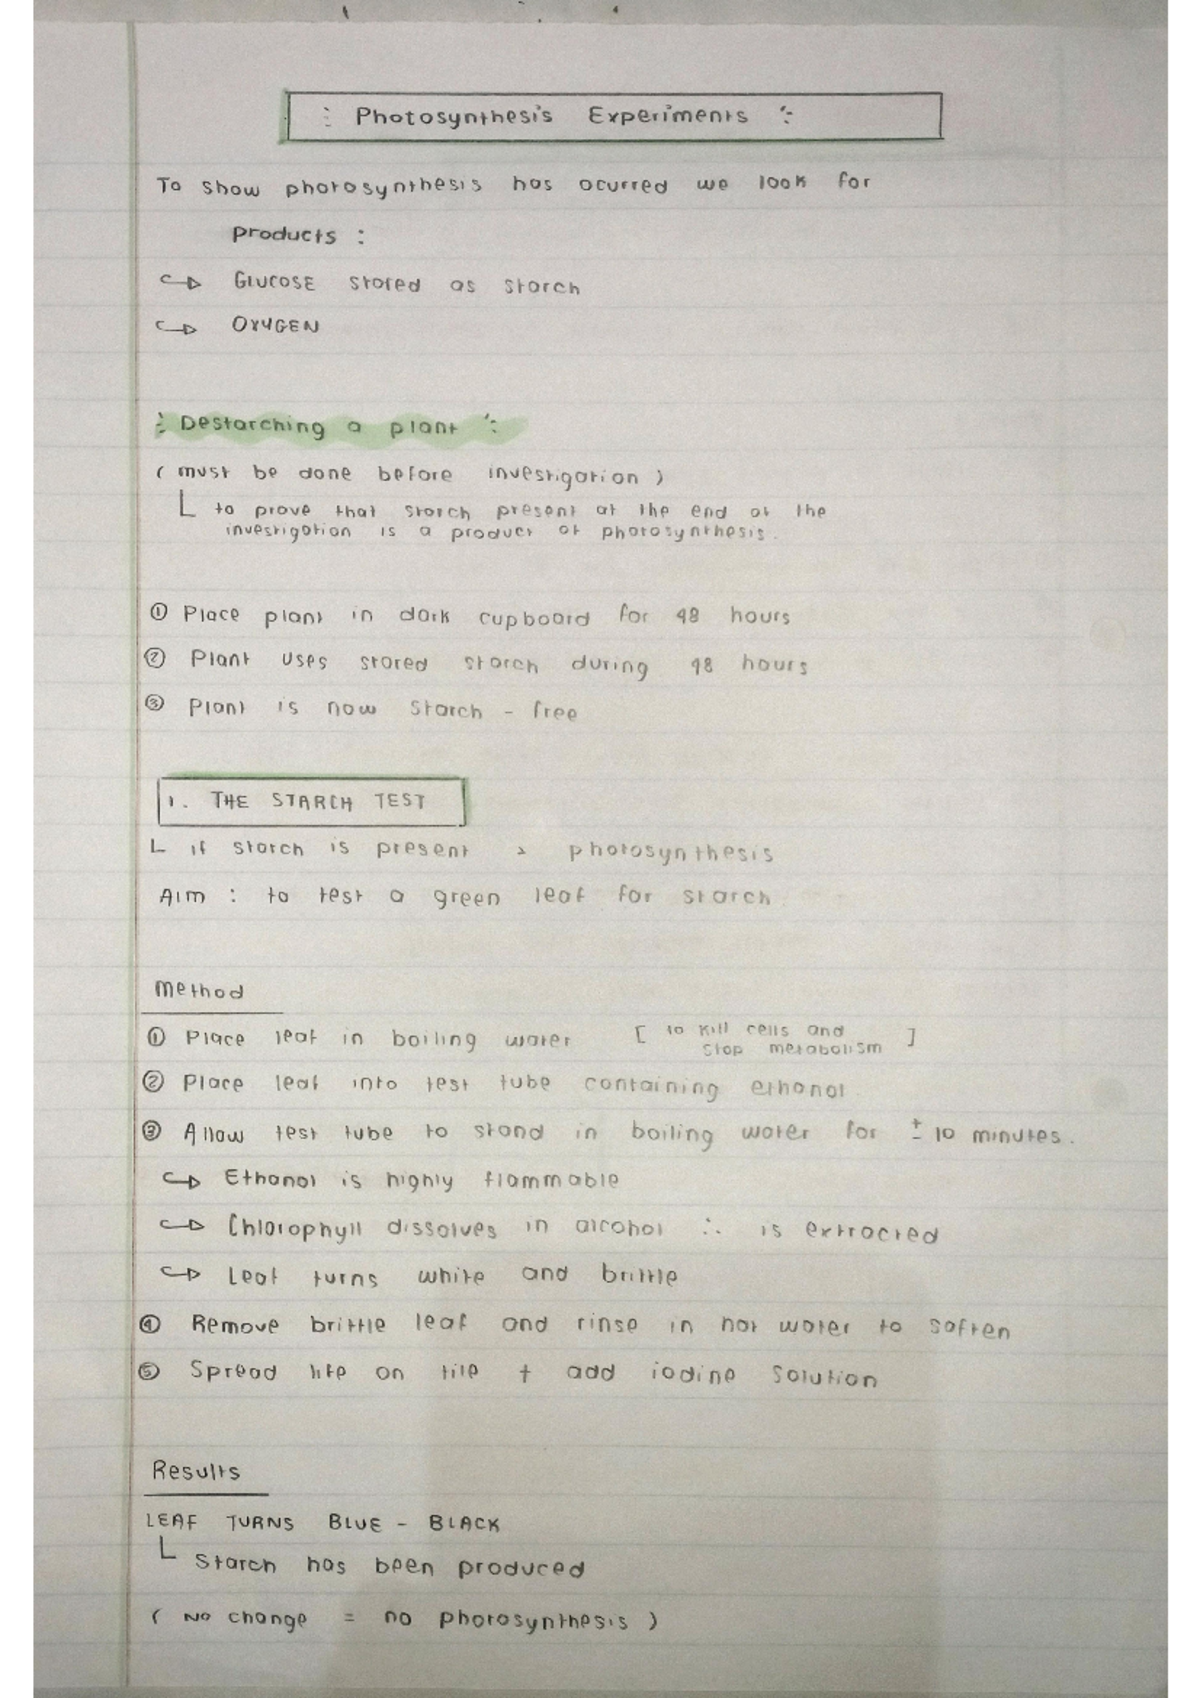 Photosynthesis Experiments
To show photosynthesis has ocurred we look for
products :
↪ Glucose stored as starch
↪ OXYGEN
Destarching a plant
( must be done before investigation )
└ to prove that starch present at the end of the
investigation is a product of photosynthesis.
① Place plant in dark cupboard for 48 hours
② Plant uses stored starch during 48 hours
③ Plant is now starch - free
1. THE STARCH TEST
└ if starch is present > photosynthesis
Aim : to test a green leaf for starch
Method
① Place leaf in boiling water [ to kill cells and
stop metabolism ]
② Place leaf into test tube containing ethanol.
③ Allow test tube to stand in boiling water for ± 10 minutes.
↪ Ethanol is highly flammable
↪ Chlorophyll dissolves in alcohol ∴ is extracted
↪ Leaf turns white and brittle
④ Remove brittle leaf and rinse in hot water to soften
⑤ Spread on tile + add iodine solution
Results
LEAF TURNS BLUE - BLACK
└ Starch has been produced
( No change = no photosynthesis )